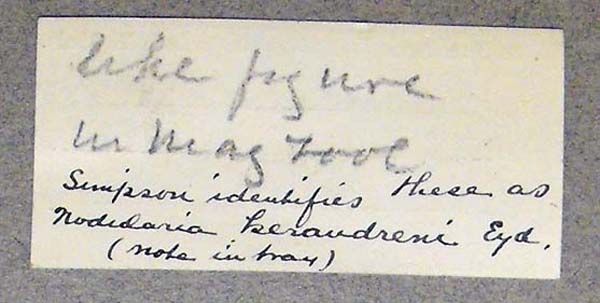 like figure
in Mag Zool
Simpson identifies these as
Nodularia keraudreni Eyd.
(note in tray)